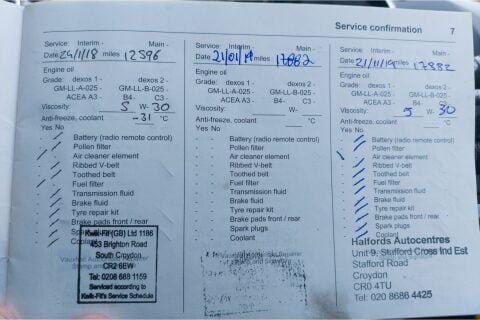 Service confirmation 7
Service: Interim - Main -
Date 24/1/18 miles 12596
Engine oil
Grade: dexos 1 - dexos 2 -
GM-LL-A-025 - GM-LL-B-025 -
ACEA A3 - B4- C3-
Viscosity: 5 W- 30
Anti-freeze, coolant -31 °C
Yes No
- Battery (radio remote control)
- Pollen filter
- Air cleaner element
- Ribbed V-belt
- Toothed belt
- Fuel filter
- Transmission fluid
- Brake fluid
- Tyre repair kit
- Brake pads front / rear
- Spark plugs
- Coolant
Kwik-Fit (GB) Ltd 1186
453 Brighton Road
South Croydon
CR2 6EW
Tel: 0208 688 1159
Serviced according to
Kwik-Fit's Service Schedule
Service: Interim - Main -
Date 21/01/19 miles 17882
Engine oil
Grade: dexos 1 - dexos 2 -
GM-LL-A-025 - GM-LL-B-025 -
ACEA A3 - B4- C3-
Viscosity: W-
Anti-freeze, coolant °C
Yes No
- - Battery (radio remote control)
- - Pollen filter
- - Air cleaner element
- - Ribbed V-belt
- - Toothed belt
- - Fuel filter
- - Transmission fluid
- - Brake fluid
- - Tyre repair kit
- - Brake pads front / rear
- - Spark plugs
- - Coolant
Service: Interim - Main -
Date 21/11/19 miles 17882
Engine oil
Grade: dexos 1 - dexos 2 -
GM-LL-A-025 - GM-LL-B-025 -
ACEA A3 - B4- C3-
Viscosity: 5 W- 30
Anti-freeze, coolant °C
Yes No
- Battery (radio remote control)
- Pollen filter
- Air cleaner element
- Ribbed V-belt
- Toothed belt
- Fuel filter
- Transmission fluid
- Brake fluid
- Tyre repair kit
- Brake pads front / rear
- Spark plugs
- Coolant
Halfords Autocentres
Unit 9, Stafford Cross Ind Est
Stafford Road
Croydon
CR0 4TU
Tel: 020 8686 4425